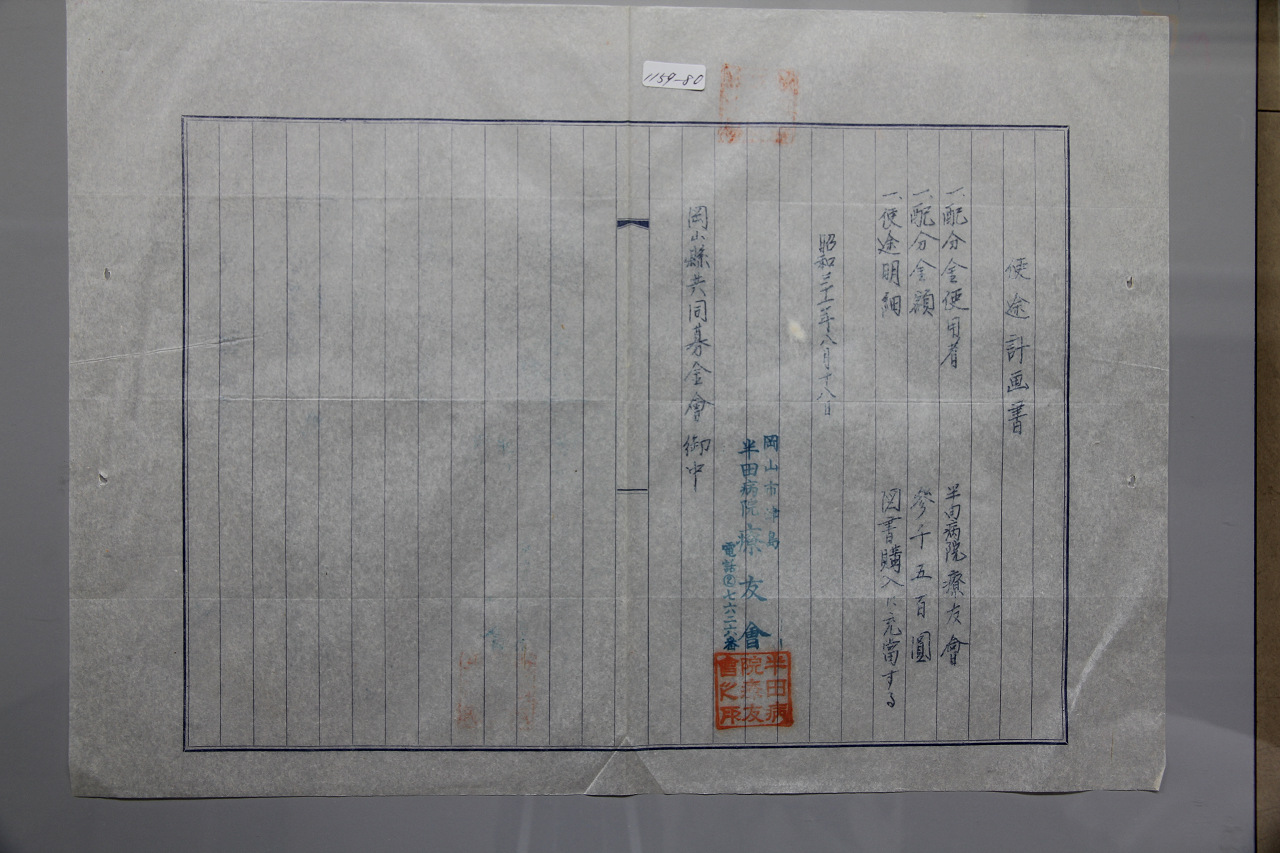 1159-80
使途計画書
一、配分金使用者 半田病院療友會
一、配分金額 参千五百圓
一、使途明細 図書購入に充当する
昭和三十一年八月十八日
岡山市津島
半田病院療友會
電話②七六二六番
半田病
院療友
會之印
岡山縣共同募金會 御中